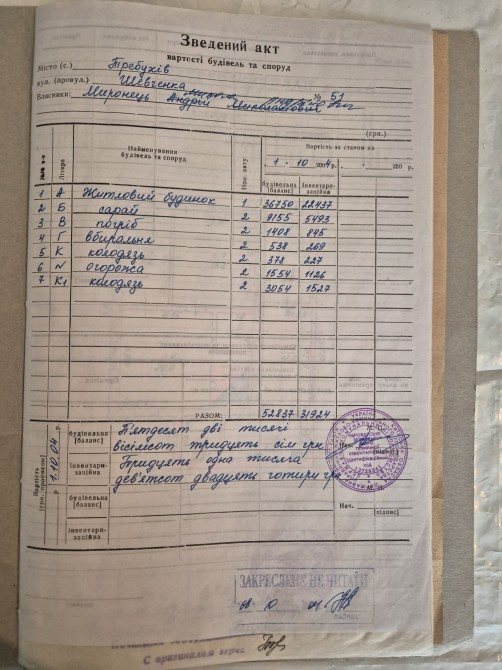 Зведений акт
вартості будівель та споруд
Місто (с.) Требухів
вул. (провул.) Шевченка № 51
Власники: Миронець Андрій Миколайович
(грн.)
№№ п-п Літера Найменування будівель та споруд Ном. акту Вартість за станом на
1 · 10 · 2004р. · - · 200 р.
будівельна [баланс] Інвентаризаційна
1 А Житловий будинок 1 36750 22437
2 Б сарай 2 9155 5493
3 В погріб 2 1408 845
4 Г вбиральня 2 538 269
5 К колодязь 2 378 227
6 N огорожа 2 1554 1126
7 К1 колодязь 2 3054 1527
РАЗОМ: 52837 31924
Вартість [грн. прописом]
1.10.04 р
будівельна [баланс] П'ятдесят дві тисячі
вісімсот тридцять сім грн
інвентаризаційна Тридцять одна тисяча
дев'ятсот двадцять чотири грн
будівельна [баланс]
Нач.
[підпис]
інвентаризаційна
М. П.
ЗАКРЕСЛЕНЕ НЕ ЧИТАТИ
08 10 04
підпис
С оригиналом верно